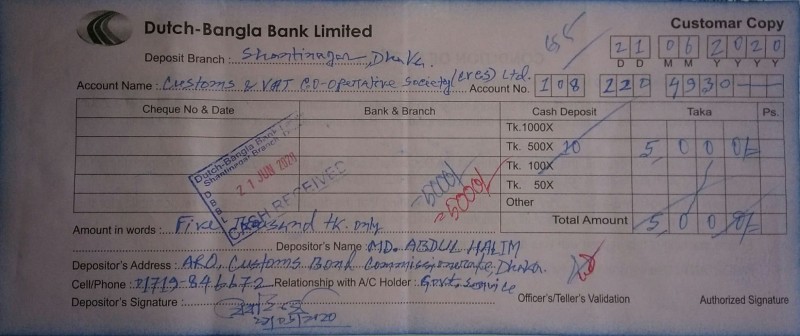 Dutch-Bangla Bank Limited
Customar Copy
21 06 2020
D D M M Y Y Y Y
Deposit Branch : Shantinagar, Dhaka.
Account Name : Customs & VAT CO-operative Society (CVCS) Ltd. Account No. 108 220 4930
Cheque No & Date Bank & Branch Cash Deposit Taka Ps.
Tk.1000X
Tk. 500X 10 5 0 0 0/-
Tk. 100X
Tk. 50X
Other
Total Amount 5 0 0 0/-
Dutch-Bangla Bank
Shantinagar Branch
21 JUN 2020
CASH RECEIVED
=5000/-
=5000/-
Amount in words : Five Thousand tk. only
Depositor's Name : MD. ABDUL HALIM
Depositor's Address : ARO, Customs Bond Commissionerate, Dhaka.
Cell/Phone : 01719-846672 Relationship with A/C Holder : Govt. service
Depositor's Signature :
Officer's/Teller's Validation Authorized Signature